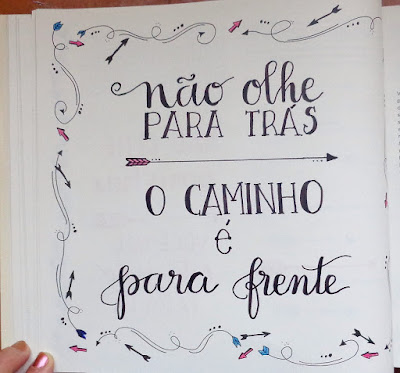 não olhe
PARA TRÁS
O CAMINHO
é
para frente